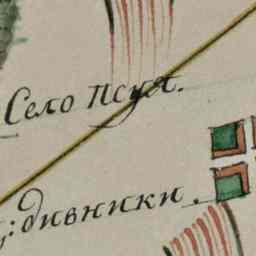 Село Псуя.
дивники